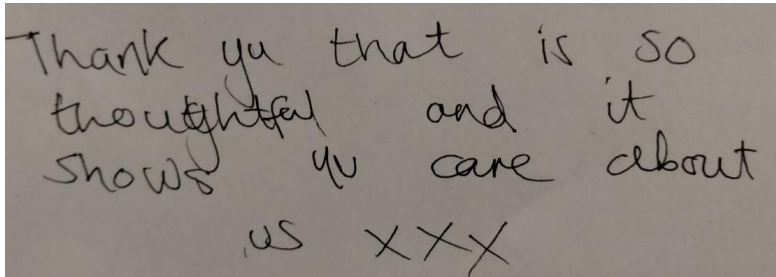 Thank yu that is so
thoughtful and it
shows yu care about
us xxx